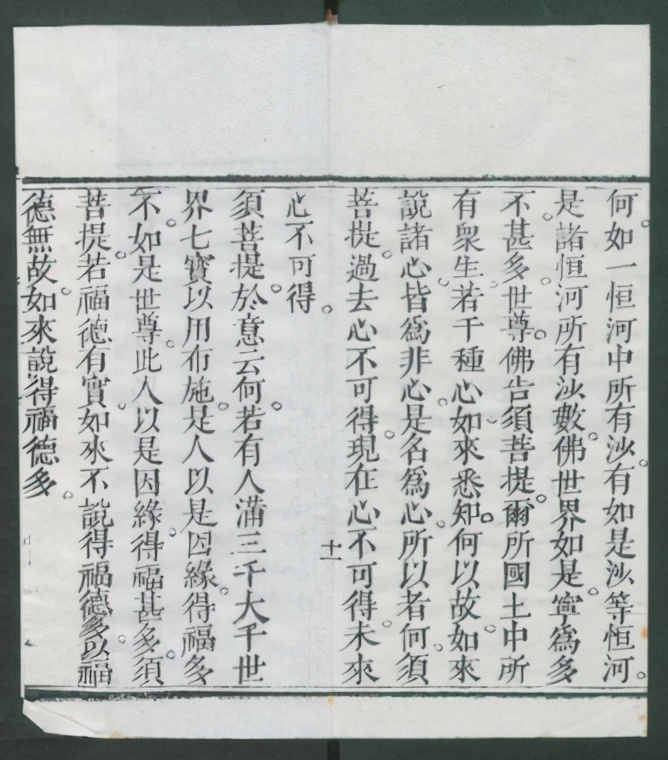 何如一恒河中所有沙。有如是沙等恒河。
是諸恒河所有沙數。佛世界如是。寧爲多
不。甚多。世尊。佛告須菩提。爾所國土中所
有衆生。若干種心。如來悉知。何以故。如來
說諸心。皆爲非心。是名爲心。所以者何。須
菩提。過去心不可得。現在心不可得。未來
心不可得。
十一
須菩提。於意云何。若有人滿三千大千世
界七寶。以用布施。是人以是因緣。得福多
不。如是。世尊。此人以是因緣。得福甚多。須
菩提。若福德有實。如來不說得福德多。以福
德無故。如來說得福德多。